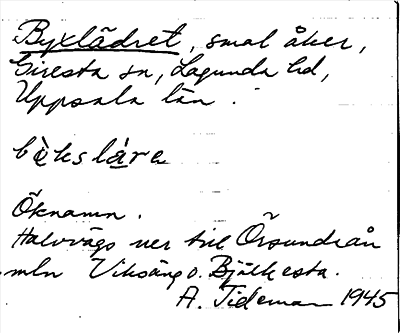 Byxlädret, smal åker,
Giresta sn, Lagunda hd,
Uppsala län.
bȯ̀kslàre
Öknamn.
Halvvägs ner till Örsundaån
mln Viksäng o. Bjälkesta.
A. Tideman 1945